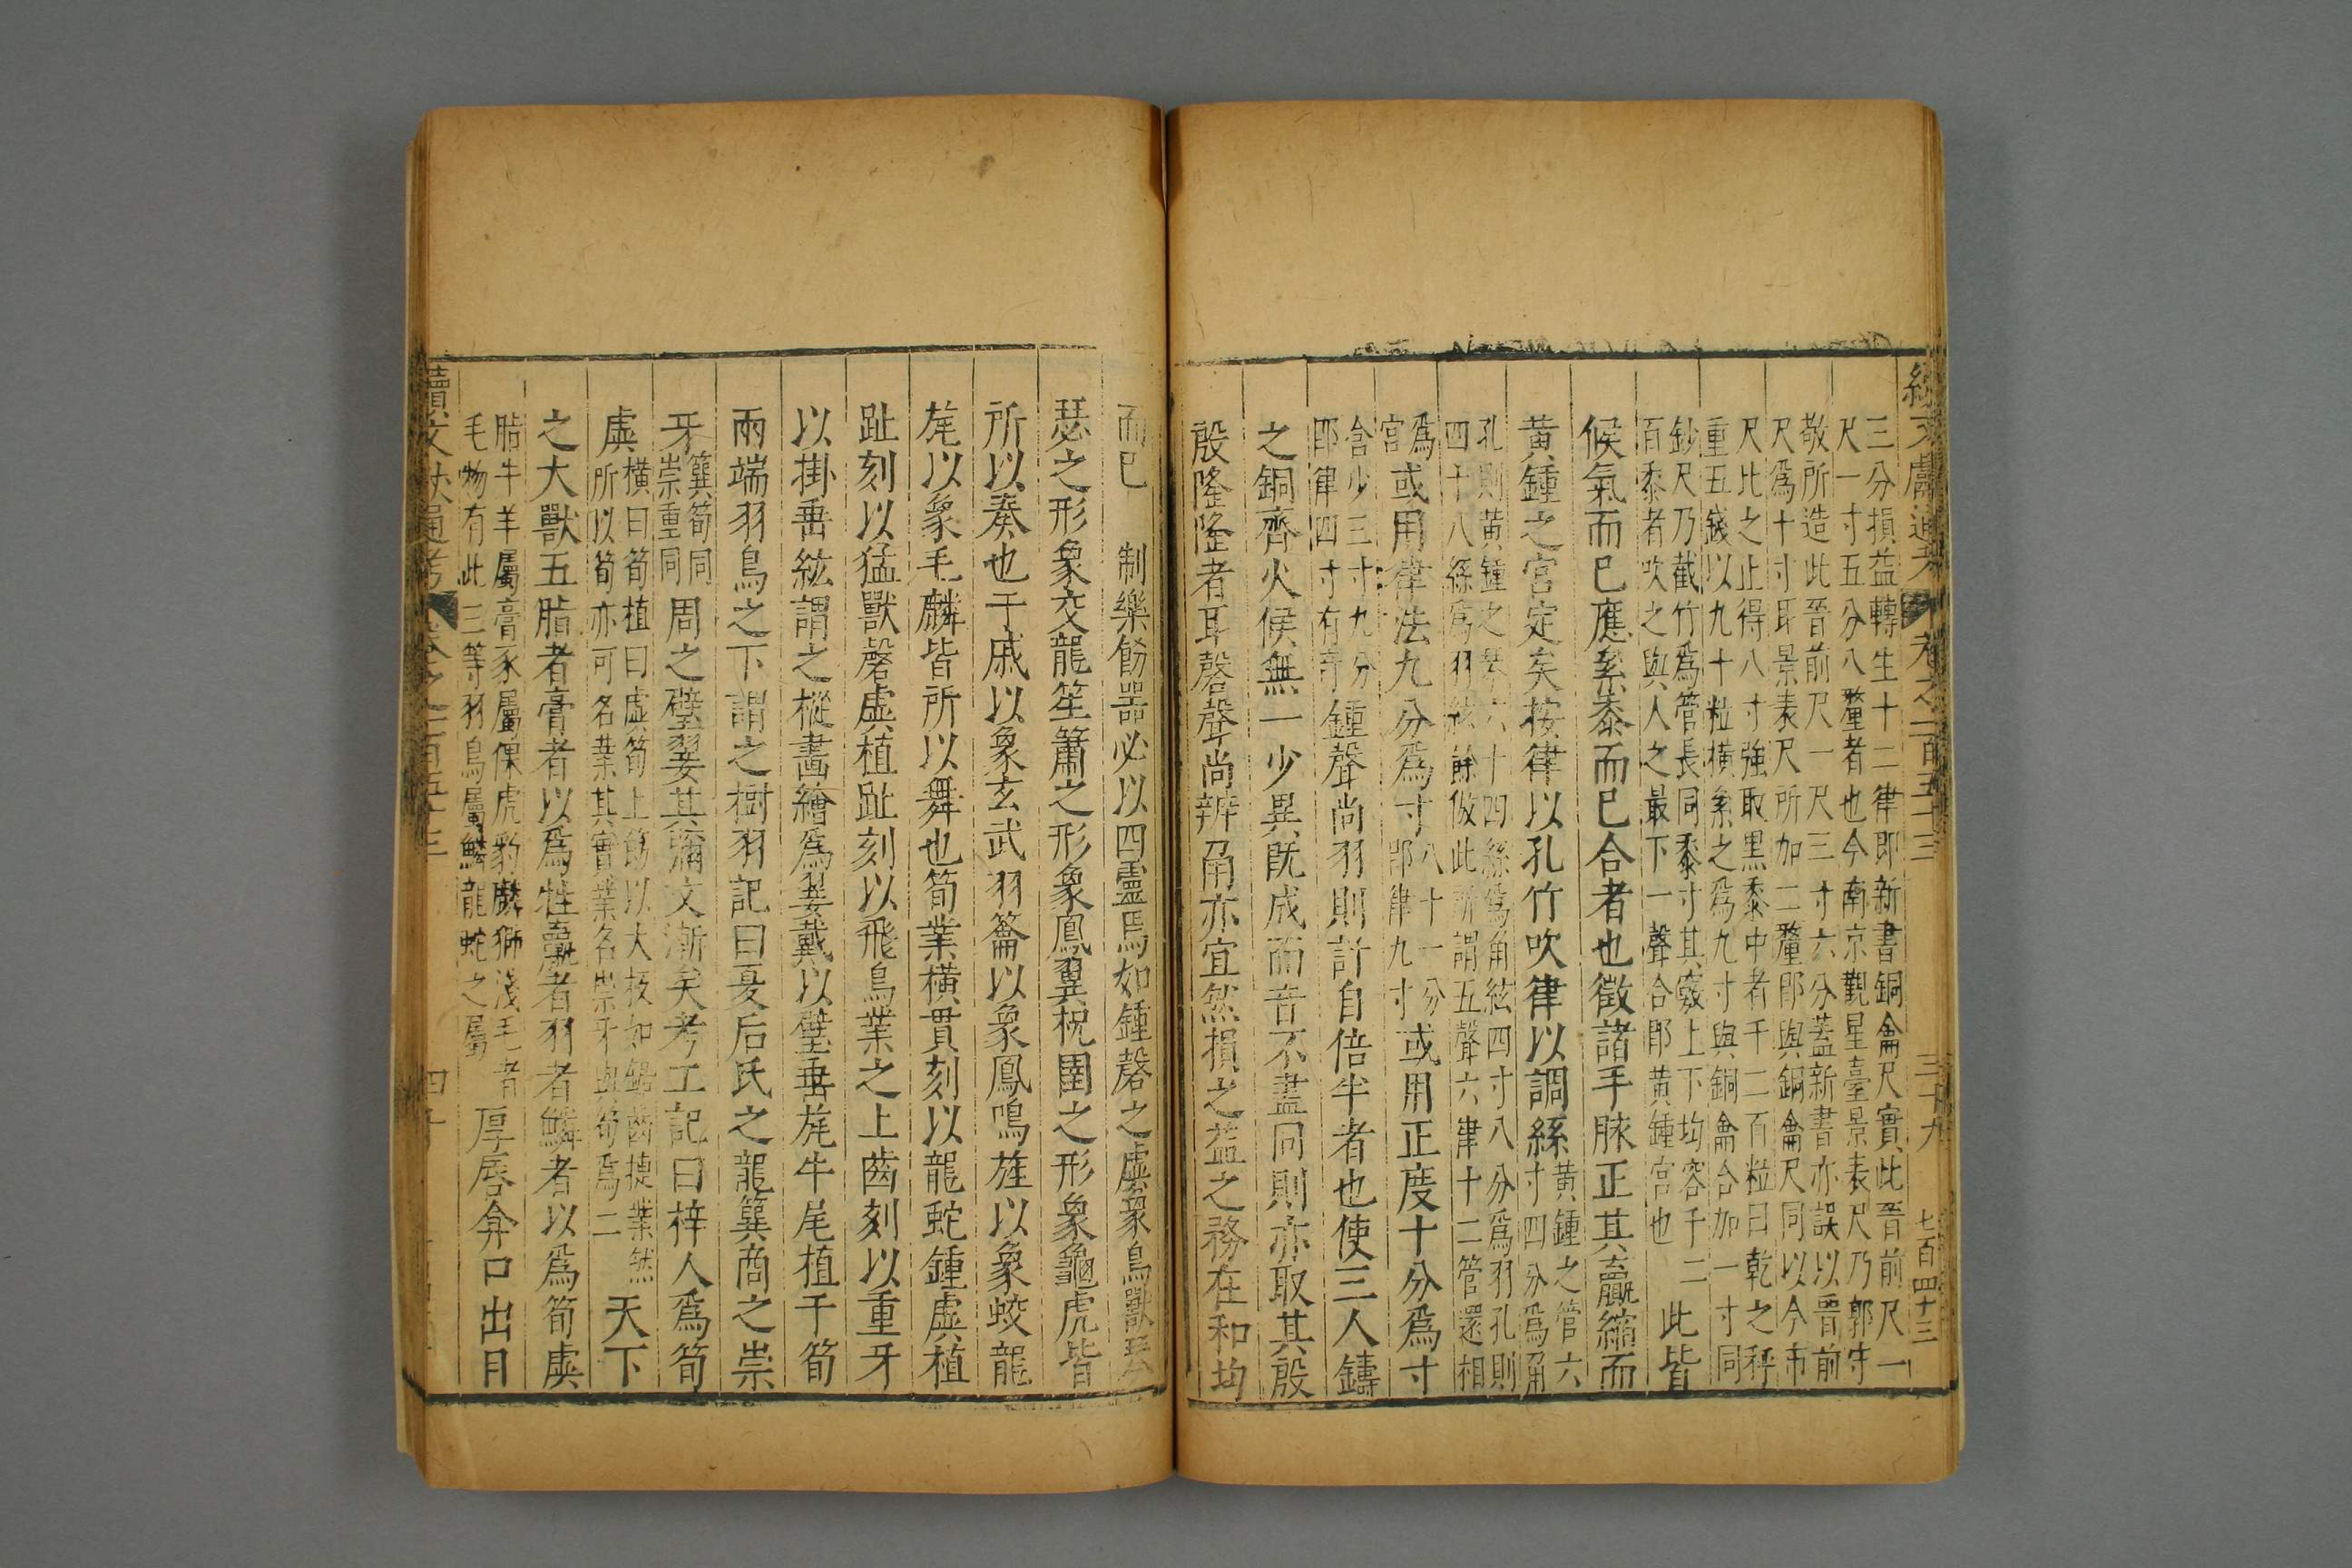 續文獻通考 卷之一百五十三 三十九 七百四十三
三分損益轉生十二律即新書銅龠尺實比晉前尺一
尺一寸五分八釐者也今南京觀星臺景表尺乃郭守
敬所造此晉前尺一尺三寸六分蓋新書亦誤以晉前
尺爲十寸耳景表尺所加二釐即與銅龠尺同以今市
尺比之止得八寸強取黑黍中者千二百粒曰乾之秤
重五錢以九十粒橫絫之爲九寸與銅龠合加一寸同
鈔尺乃截竹爲管長同黍寸其竅上下均容千二
百黍者吹之與人之最下一聲合即黃鍾宮也 此皆
候氣而已應絫黍而已合者也徵諸手脉正其贏縮而
黃鍾之宮定矣按律以孔竹吹律以調絲黃鍾之管六
寸四分爲角
孔則黃鍾之 六十四絲爲角絃四寸八分爲羽孔則
四十八絲爲羽絃餘倣此所謂五聲六律十二管還相
爲宮或用律法九分爲寸八十一分即律九寸或用正度十分爲寸
含少三寸九分
即律四寸有奇鍾聲尚羽則許自倍半者也使三人鑄
之銅齊火候無一少異旣成而音不盡同則亦取其殷
殷隆隆者耳磬聲尚辨角亦宜然損之益之務在和均
而已 制樂飭器必以四靈焉如鍾磬之虡象鳥獸琴
瑟之形象交龍笙簫之形象鳳翼柷圉之形象龜虎皆
所以奏也干戚以象玄武羽籥以象鳳鳴旌以象蛟龍
旄以象毛麟皆所以舞也筍業橫貫刻以龍蛇鍾虡植
趾刻以猛獸磬虡植趾刻以飛鳥業之上齒刻以重牙
以掛垂絃謂之樅畵繪爲翣戴以璧垂旄牛尾植于筍
兩端羽鳥之下謂之樹羽記曰夏后氏之龍簨商之崇
牙簨筍同崇重同周之璧翣其彌文漸矣考工記曰梓人爲筍
虡橫曰筍植曰虡筍上飾以大板如鋸齒捷業然
所以筍亦可名業其實業名崇牙虡筍爲二 天下
之大獸五脂者膏者以爲牲臝者羽者鱗者以爲筍虡
脂牛羊屬膏豕屬倮虎豹麟獅淺毛者
毛物有此三等羽鳥屬鱗龍蛇之屬 厚唇弇口出目
續文獻通考 卷之一百五十三 四十